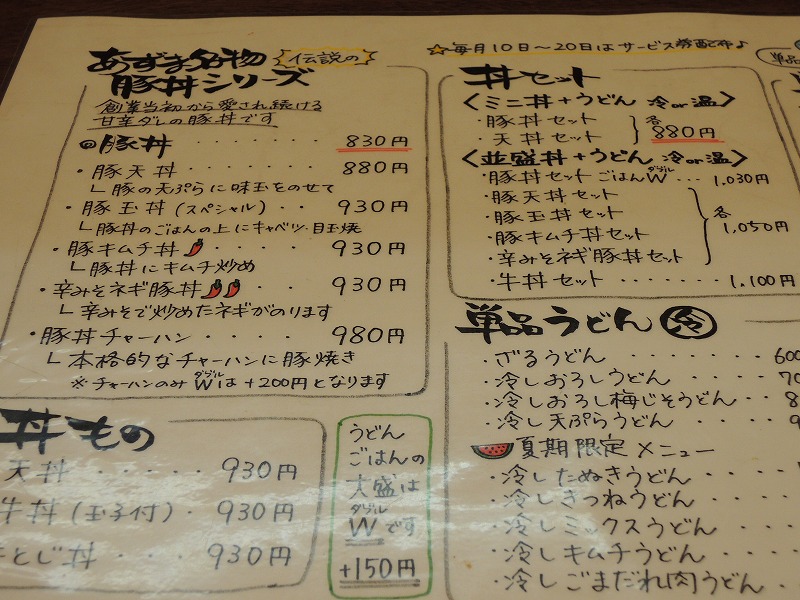 あずま名物
伝説の
豚丼シリーズ
創業当初から愛され続ける
甘辛ダレの豚丼です
豚丼 ・・・・・・・ 830円
・豚天丼 ・・・・・・ 880円
└豚の天ぷらに味玉をのせて
・豚玉丼(スペシャル)・・ 930円
└豚丼のごはんの上にキャベツ・目玉焼
・豚キムチ丼 ・・・・ 930円
└豚丼にキムチ炒め
・辛みそネギ豚丼 ・・・ 930円
└辛みそで炒めたネギがのります
・豚丼チャーハン・・・・ 980円
└本格的なチャーハンに豚焼き
※チャーハンのみWダブルは+200円となります
丼もの
天丼 ・・・・・ 930円
牛丼(玉子付)・ 930円
とじ丼 ・・・・ 930円
うどん
ごはんの
大盛は
ダブル
Wです
+150円
☆毎月10日〜20日はサービス券配布♪
単品
丼セット
〈ミニ丼+うどん 冷or温〉
・豚丼セット
・天丼セット
各
880円
〈並盛丼+うどん 冷or温〉
・豚丼セットごはんWダブル・・・1,030円
・豚天丼セット
・豚玉丼セット
・豚キムチ丼セット
・辛みそネギ豚丼セット
各
1,050円
・牛丼セット ・・・・・・1,100円
単品うどん 冷
・ざるうどん ・・・・・・・600
・冷しおろしうどん ・・・・70
・冷しおろし梅じそうどん ・・8
・冷し天ぷらうどん ・・・・・9
夏期限定メニュー
・冷したぬきうどん ・・・・
・冷しきつねうどん ・・・・
・冷しミックスうどん ・・・
・冷しキムチうどん ・・・・
・冷しごまだれ肉うどん・・